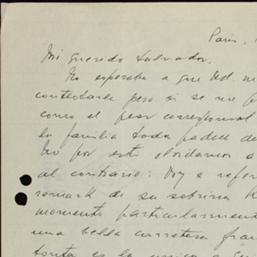 Paris,
Mi querido Salvador.
No esperaba a que Ud. me
contestara pero si se me
como el peor corresponsal
la familia toda padece del
No por esto olvidamos a
al contrario: Hoy a
de su sobrina
momento particularmente
una bella carretera
es la